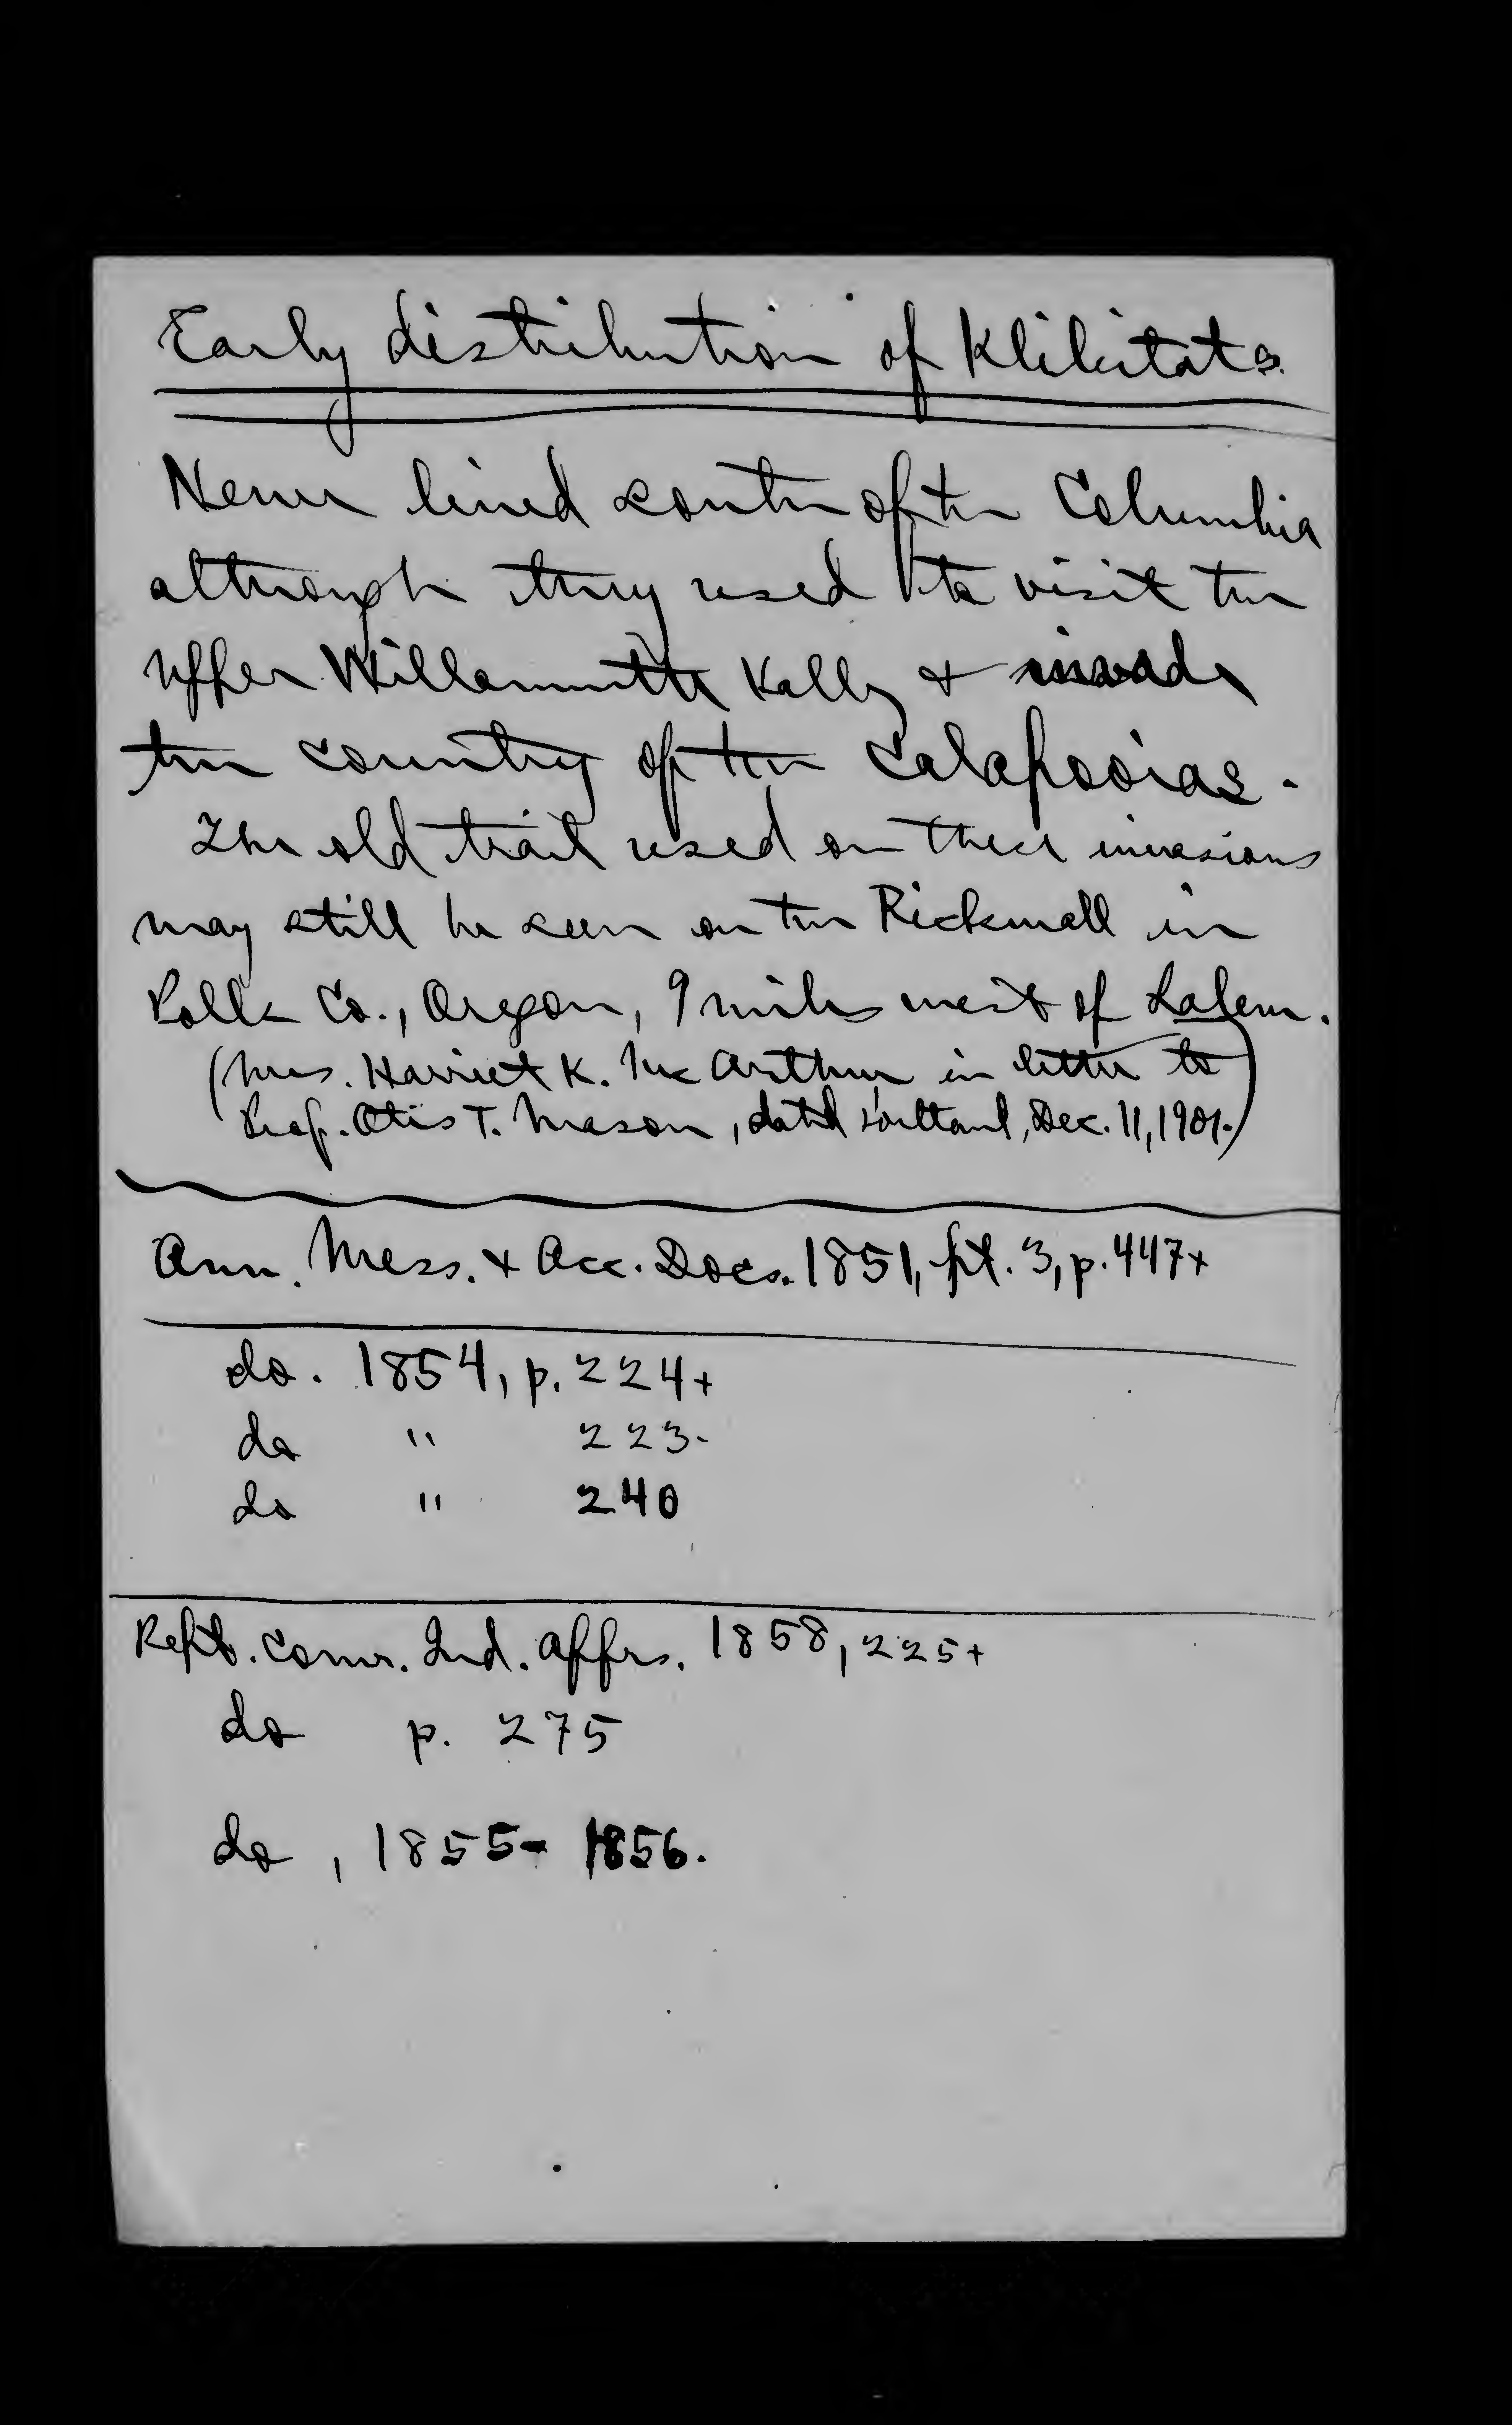 Early distribution of Klikitats.
Never lived south of the Columbia
although they used to visit the
upper Willammette Vally & invade
the country of the Calapooias.
The old trail used on these invasions
may still be seen on the Rickreall in
Polk Co., Oregon, 9 miles west of Salem.
(Mrs. Harriet K. McArthur in letter to
Prof. Otis T. Mason, dated Portland, Dec. 11, 1901.)
Ann. Mess. & Acc. Docs. 1851, pt. 3, p. 447+
do. 1854, p. 224+
do " 223-
do " 240
Rept. Comr. Ind. Affrs. 1858, 225+
do p. 275
do, 1855-1856.